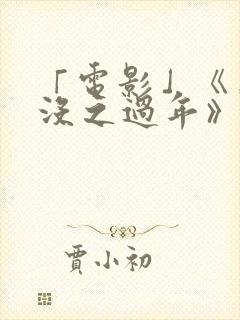 「電影」《
沒之過年》
賈小初